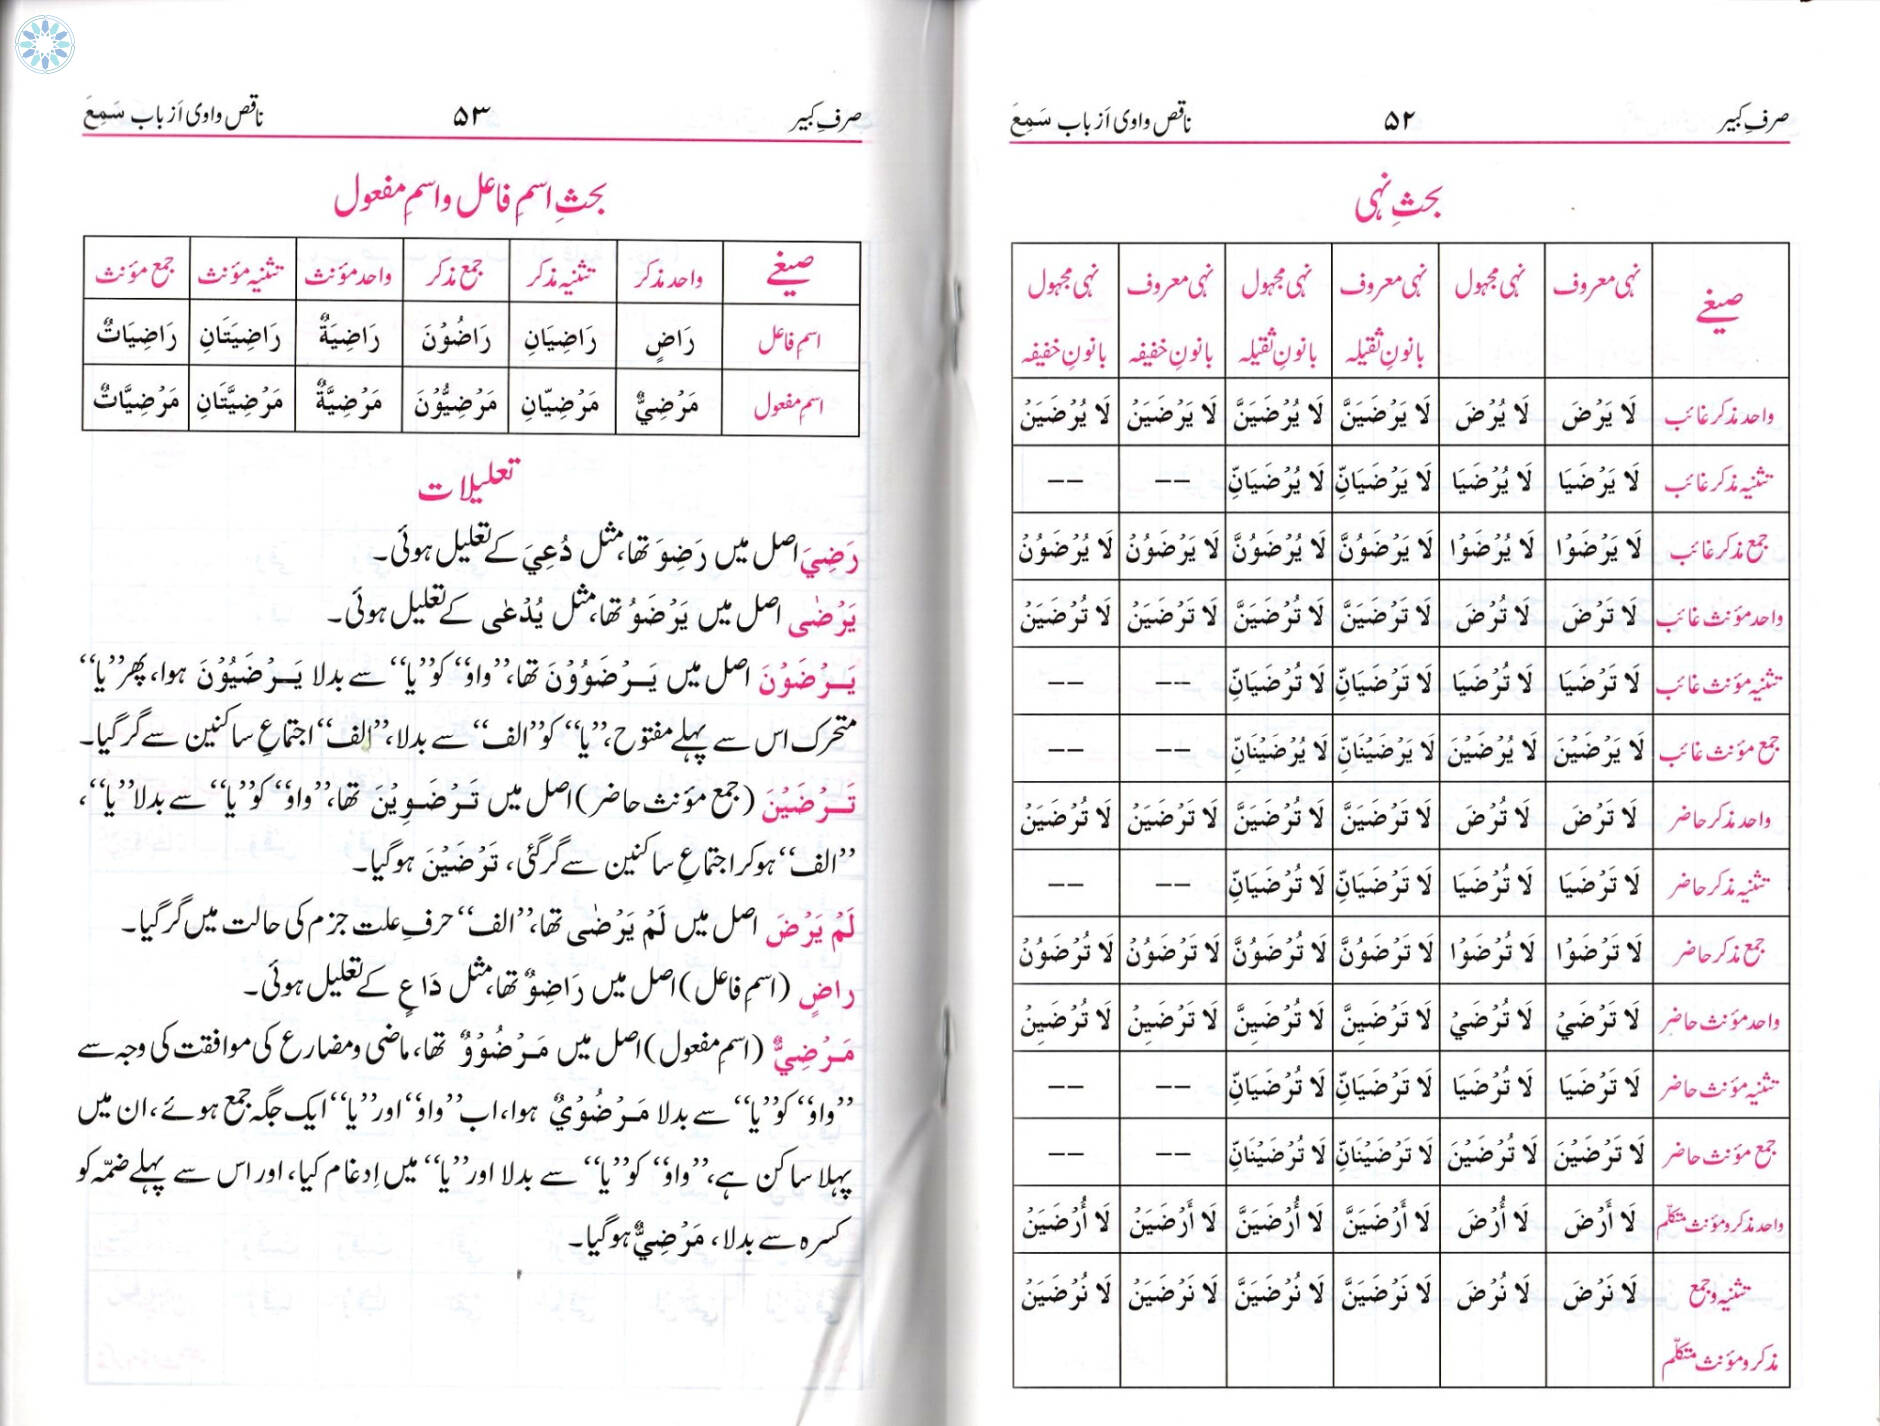 صرفِ کبیر ۵۲ ناقص واوی اَز باب سَمِعَ
بحثِ نہی
صیغے نہی معروف نہی مجہول نہی معروف بانونِ ثقیلہ نہی مجہول بانونِ ثقیلہ نہی معروف بانونِ خفیفہ نہی مجہول بانونِ خفیفہ
واحد مذکر غائب لَا يَرْضَ لَا يُرْضَ لَا يَرْضَيَنَّ لَا يُرْضَيَنَّ لَا يَرْضَيَنْ لَا يُرْضَيَنْ
تثنیہ مذکر غائب لَا يَرْضَيَا لَا يُرْضَيَا لَا يَرْضَيَانِّ لَا يُرْضَيَانِّ -- --
جمع مذکر غائب لَا يَرْضَوْا لَا يُرْضَوْا لَا يَرْضَوُنَّ لَا يُرْضَوُنَّ لَا يَرْضَوُنْ لَا يُرْضَوُنْ
واحد مؤنث غائب لَا تَرْضَ لَا تُرْضَ لَا تَرْضَيَنَّ لَا تُرْضَيَنَّ لَا تَرْضَيَنْ لَا تُرْضَيَنْ
تثنیہ مؤنث غائب لَا تَرْضَيَا لَا تُرْضَيَا لَا تَرْضَيَانِّ لَا تُرْضَيَانِّ -- --
جمع مؤنث غائب لَا يَرْضَيْنَ لَا يُرْضَيْنَ لَا يَرْضَيْنَانِّ لَا يُرْضَيْنَانِّ -- --
واحد مذکر حاضر لَا تَرْضَ لَا تُرْضَ لَا تَرْضَيَنَّ لَا تُرْضَيَنَّ لَا تَرْضَيَنْ لَا تُرْضَيَنْ
تثنیہ مذکر حاضر لَا تَرْضَيَا لَا تُرْضَيَا لَا تَرْضَيَانِّ لَا تُرْضَيَانِّ -- --
جمع مذکر حاضر لَا تَرْضَوْا لَا تُرْضَوْا لَا تَرْضَوُنَّ لَا تُرْضَوُنَّ لَا تَرْضَوُنْ لَا تُرْضَوُنْ
واحد مؤنث حاضر لَا تَرْضَيْ لَا تُرْضَيْ لَا تَرْضَيِنَّ لَا تُرْضَيِنَّ لَا تَرْضَيِنْ لَا تُرْضَيِنْ
تثنیہ مؤنث حاضر لَا تَرْضَيَا لَا تُرْضَيَا لَا تَرْضَيَانِّ لَا تُرْضَيَانِّ -- --
جمع مؤنث حاضر لَا تَرْضَيْنَ لَا تُرْضَيْنَ لَا تَرْضَيْنَانِّ لَا تُرْضَيْنَانِّ -- --
واحد مذکر و مؤنث متکلّم لَا أَرْضَ لَا أُرْضَ لَا أَرْضَيَنَّ لَا أُرْضَيَنَّ لَا أَرْضَيَنْ لَا أُرْضَيَنْ
تثنیہ و جمع لَا نَرْضَ لَا نُرْضَ لَا نَرْضَيَنَّ لَا نُرْضَيَنَّ لَا نَرْضَيَنْ لَا نُرْضَيَنْ
مذکر و مؤنث متکلّم
صرفِ کبیر ۵۳ ناقص واوی اَز باب سَمِعَ
بحثِ اسمِ فاعل واسمِ مفعول
صیغے واحد مذکر تثنیہ مذکر جمع مذکر واحد مؤنث تثنیہ مؤنث جمع مؤنث
اسمِ فاعل رَاضٍ رَاضِيَانِ رَاضُوْنَ رَاضِيَةٌ رَاضِيَتَانِ رَاضِيَاتٌ
اسمِ مفعول مَرْضِيٌّ مَرْضِيَّانِ مَرْضِيُّوْنَ مَرْضِيَّةٌ مَرْضِيَّتَانِ مَرْضِيَّاتٌ
تعلیلات
رَضِيَ اصل میں رَضِوَ تھا، مثل دُعِيَ کے تعلیل ہوئی۔
يَرْضٰى اصل میں يَرْضَوُ تھا، مثل يُدْعٰى کے تعلیل ہوئی۔
يَرْضَوْنَ اصل میں يَرْضَوُوْنَ تھا، ’’واؤ‘‘ کو ’’یا‘‘ سے بدلا يَرْضَيُوْنَ ہوا، پھر ’’یا‘‘
متحرک اس سے پہلے مفتوح، ’’یا‘‘ کو ’’الف‘‘ سے بدلا، ’’الف‘‘ اجتماعِ ساکنین سے گر گیا۔
تَرْضَيْنَ (جمع مؤنث حاضر) اصل میں تَرْضَوِيْنَ تھا، ’’واؤ‘‘ کو ’’یا‘‘ سے بدلا ’’یا‘‘،
’’الف‘‘ ہوکر اجتماعِ ساکنین سے گر گئی، تَرْضَيْنَ ہوگیا۔
لَمْ يَرْضَ اصل میں لَمْ يَرْضٰى تھا، ’’الف‘‘ حرفِ علت جزم کی حالت میں گر گیا۔
راضٍ (اسمِ فاعل) اصل میں رَاضِوٌ تھا، مثل دَاعٍ کے تعلیل ہوئی۔
مَرْضِيٌّ (اسمِ مفعول) اصل میں مَرْضُوْوٌ تھا، ماضی و مضارع کی موافقت کی وجہ سے
’’واؤ‘‘ کو ’’یا‘‘ سے بدلا مَرْضُوْيٌ ہوا، اب ’’واؤ‘‘ اور ’’یا‘‘ ایک جگہ جمع ہوئے، ان میں
پہلا ساکن ہے، ’’واؤ‘‘ کو ’’یا‘‘ سے بدلا اور ’’یا‘‘ میں اِدغام کیا، اور اس سے پہلے ضمّہ کو
کسرہ سے بدلا، مَرْضِيٌّ ہوگیا۔